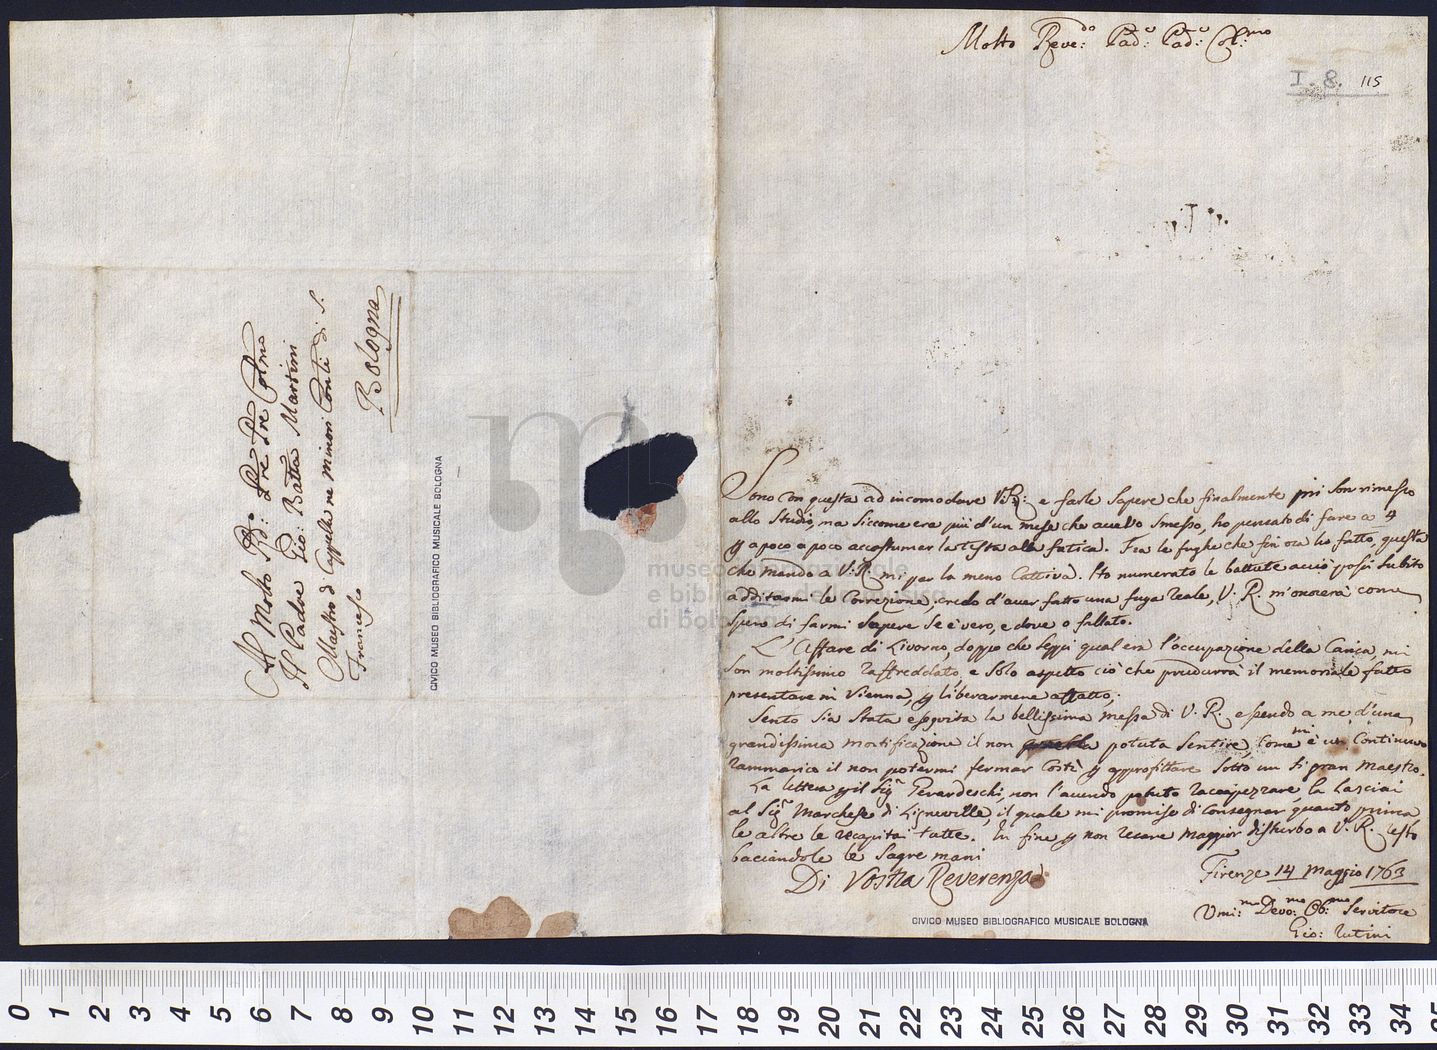 Molto Reve:do Pad:e Pad:e Col:mo
I. 8. 115
Sono con questa ad incomodare V.R: e farle sapere che finalmente mi son rimesso
allo Studio, ma siccome era più d'un mese che avevo smesso, ho pensato di fare a 4
p a poco a poco accostumar la testa alla fatica. Fra le fughe che fin ora ho fatto, questa
che mando a V.R. mi par la meno Cattiva. Ho numerato le battute acciò possi subito
additarmi le Correzione, credo d'aver fatto una fuga reale, V. R. m'onorerà come
spero di farmi sapere se è vero, e dove o fallato.
L'Affare di Livorno, doppo che seppi qual era l'occupazione della Carica, mi
son moltissimo raffreddato, e solo aspetto ciò che produrrà il memoriale fatto
presentare in Vienna, p liberarmene affatto;
Sento sia stata eseguita la bellissima messa di V. R. essendo a me d'una
grandissima mortificazione il non potuta sentire, Come mi è un Continuo
rammarico il non potermi fermar Costì p approfittare sotto un sì gran Maestro.
La lettera p il Sig.r Gerardeschi, non l'avendo potuto raccapezzare, la lasciai
al Sig.r Marchese di Ligneville, il quale mi promise di Consegnar quanto prima
le altre le recapitai tutte. In fine p non recare maggior disturbo a V. R. resto
baciandole le Sagre mani
Di Vostra Reverenza
Firenze 14 Maggio 1763
Umi:mo Devo:mo Ob:mo Servitore
Gio: Rutini
CIVICO MUSEO BIBLIOGRAFICO MUSICALE BOLOGNA
Al Molto Rdo: Pre Pre Colmo
Il Padre Gio: Batta Martini
Maestro di Cappella ne Minori Conli di S.
Francesco
Bologna
CIVICO MUSEO BIBLIOGRAFICO MUSICALE BOLOGNA
museo internazionale
e biblioteca della musica
di bologna
0 1 2 3 4 5 6 7 8 9 10 11 12 13 14 15 16 17 18 19 20 21 22 23 24 25 26 27 28 29 30 31 32 33 34